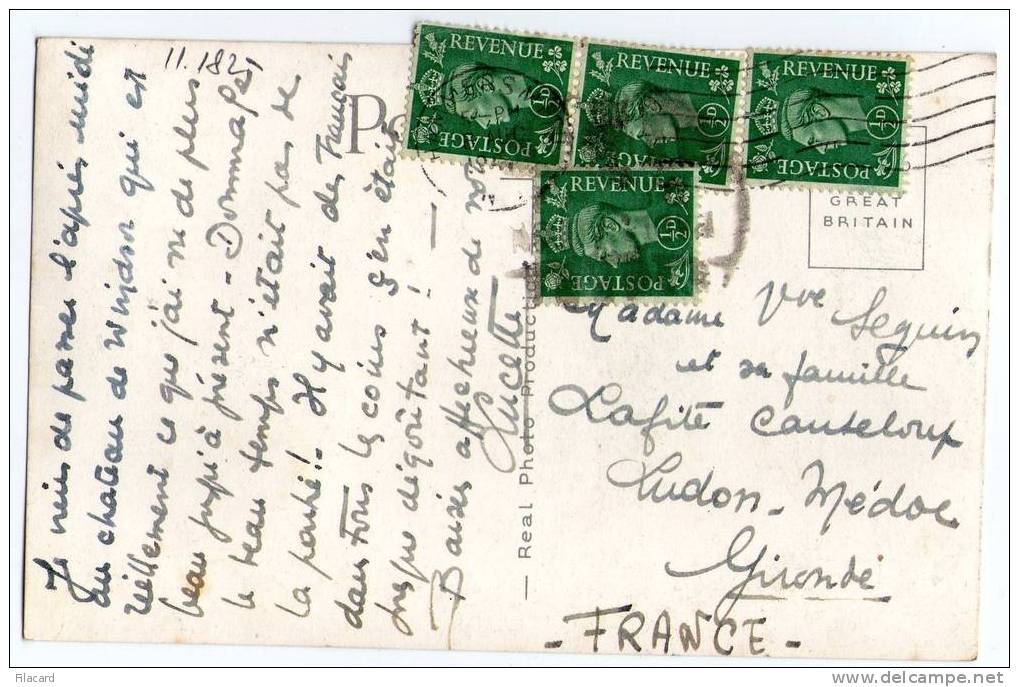 11.182
Je viens de passer l'après midi
au château de Windsor qui est
réellement ce que j'ai vu de plus
beau jusqu'à présent - Dommage
le beau temps n'était pas de
la partie!. Il y avait des Français
dans tous les coins c'en était
presque dégoûtant! —
Baisers affectueux de votre
Lucette
Real Photo Production
REVENUE
½D
POSTAGE
REVENUE
½D
POSTAGE
REVENUE
½D
POSTAGE
REVENUE
½D
POSTAGE
GREAT
BRITAIN
Madame Vve Seguin
et sa famille
Lafite Canteloup
Ludon-Médoc
Gironde
- FRANCE -
Filacard
delcampe.net